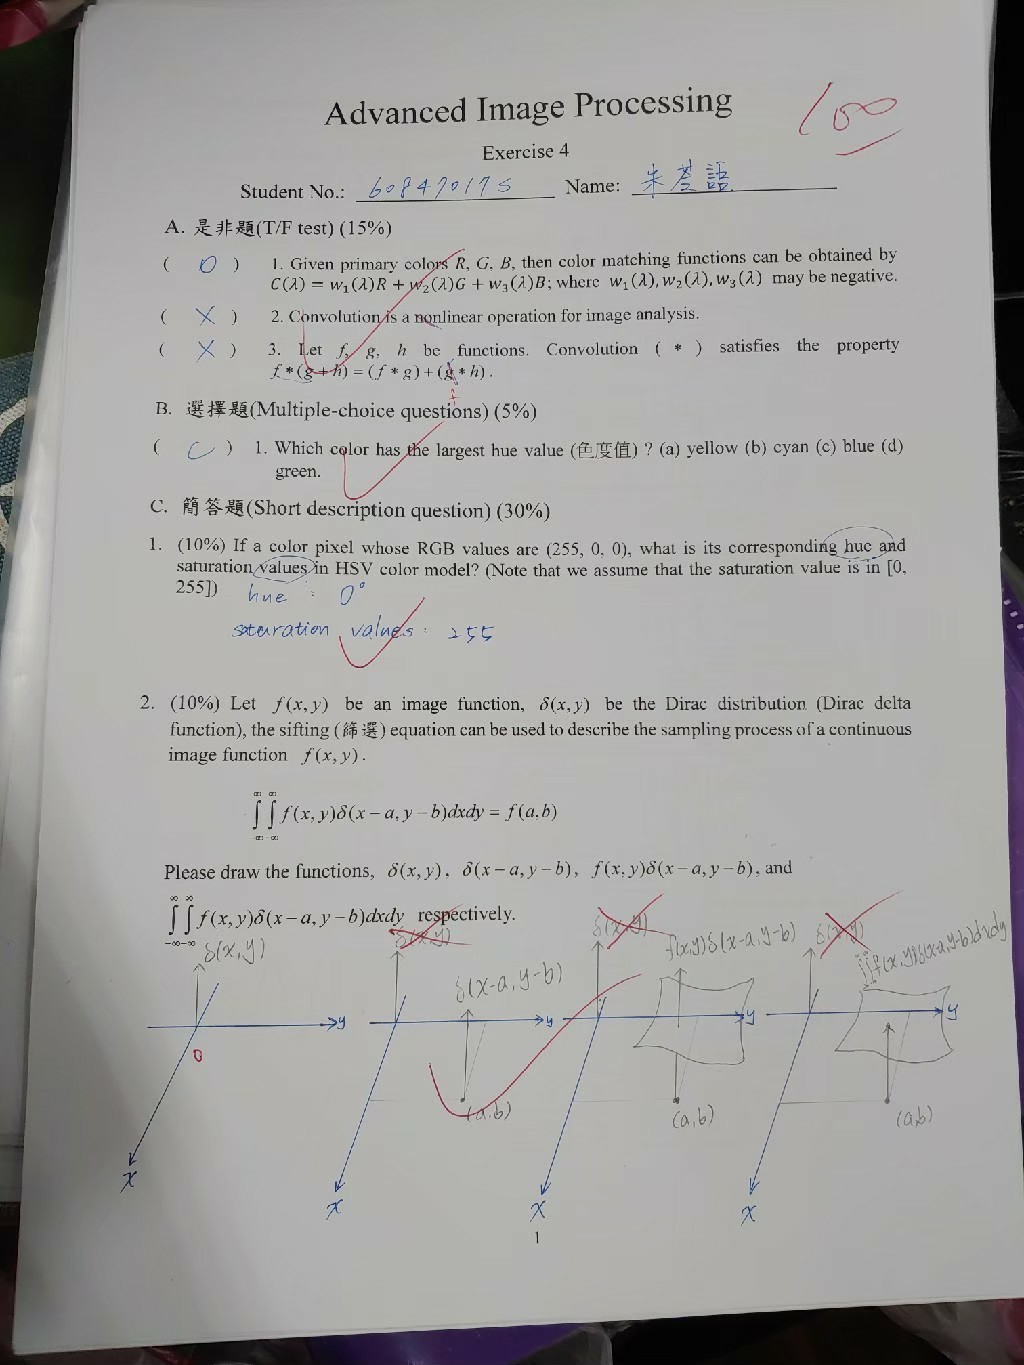 Advanced Image Processing
100
Exercise 4
Student No.: 60847017S Name: 朱蒼語
A. 是非題(T/F test) (15%)
( O ) 1. Given primary colors R, G, B, then color matching functions can be obtained by
C(λ) = w₁(λ)R + w₂(λ)G + w₃(λ)B; where w₁(λ), w₂(λ), w₃(λ) may be negative.
( X ) 2. Convolution is a nonlinear operation for image analysis.
( X ) 3. Let f, g, h be functions. Convolution ( * ) satisfies the property
f * (g + h) = (f * g) + (g * h).
f
B. 選擇題(Multiple-choice questions) (5%)
( C ) 1. Which color has the largest hue value (色度值) ? (a) yellow (b) cyan (c) blue (d)
green.
C. 簡答題(Short description question) (30%)
1. (10%) If a color pixel whose RGB values are (255, 0, 0), what is its corresponding hue and
saturation values in HSV color model? (Note that we assume that the saturation value is in [0,
255])
hue : 0°
saturation values : 255
2. (10%) Let f(x, y) be an image function, δ(x, y) be the Dirac distribution (Dirac delta
function), the sifting (篩選) equation can be used to describe the sampling process of a continuous
image function f(x, y).
∫∞-∞ ∫∞-∞ f(x, y)δ(x − a, y − b)dxdy = f(a, b)
Please draw the functions, δ(x, y), δ(x − a, y − b), f(x, y)δ(x − a, y − b), and
∫∞-∞ ∫∞-∞ f(x, y)δ(x − a, y − b)dxdy respectively.
δ(x,y) δ(x,y) δ(x,y) δ(x,y)
δ(x-a, y-b) f(x,y)δ(x-a, y-b) ∫∫f(x,y)δ(x-a,y-b)dxdy
y y y y
0
(a,b) (a,b) (a,b)
x x x x
1